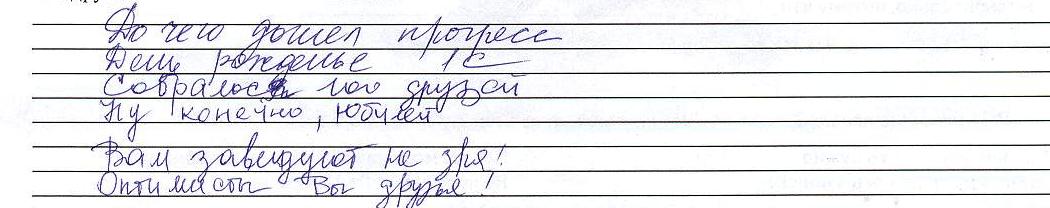 До чего дошел прогресс
День рожденье 1С
Собралось 100 друзей
Ну конечно, юбилей
Вам завидуют не зря!
Оптимисты Вы друзья!